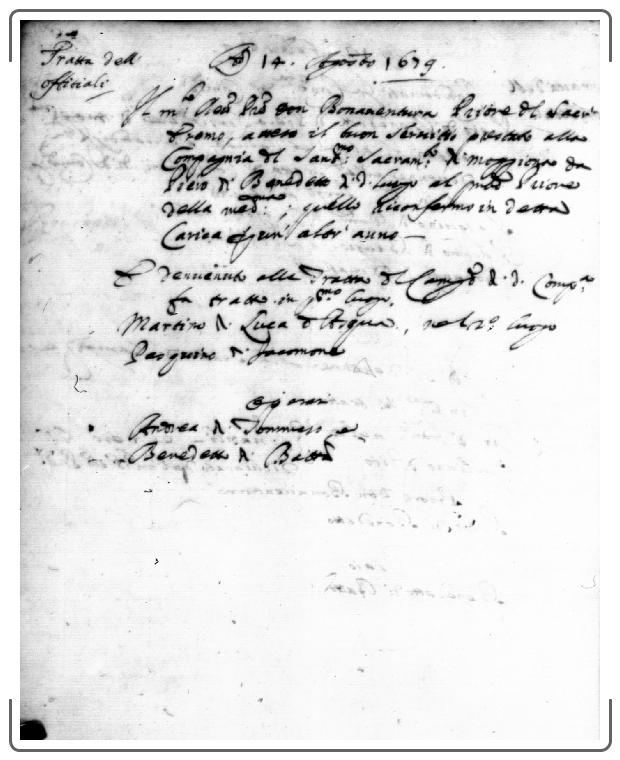 Tratta dell'
offitiali
Adì 14. Agosto 1679.
Il m.to Rev.do P.re Don Bonaventura Priore del Sacr'
Eremo, atteso il buon servitio prestato alla
Compagnia del San.mo Sacram.to di Moggiona da
Piero di Benedetto di d.o luogo al pnte Priore
della med.ma; quello riconfermo in detta
Carica per un'altr'anno
E devenuto alla Tratta del di d. Comp.a
fu tratto in p.mo luogo,
Martino di Luca d'Acqua, nel 2.o luogo
Pasquino di Jacomone
operai
Andrea di Tommaso e
Benedetto di Batta